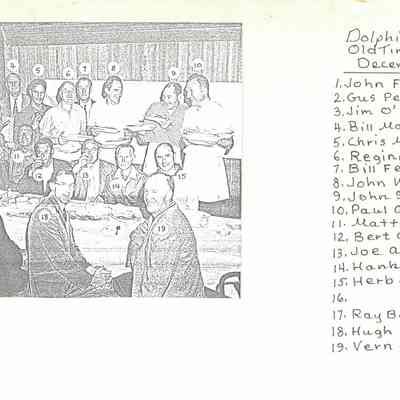 Dolphi
Old Tim
Decem
1. John F
2. Gus Pe
3. Jim O'
4. Bill Mc
5. Chris M
6. Regin
7. Bill Fe
8. John W
9. John S
10. Paul
11. Matt
12. Bert
13. Joe A
14. Hank
15. Herb
16.
17. Ray B.
18. Hugh
19. Vern
4 5 6 7 8 9 10
11 12 13 14 15
18 19